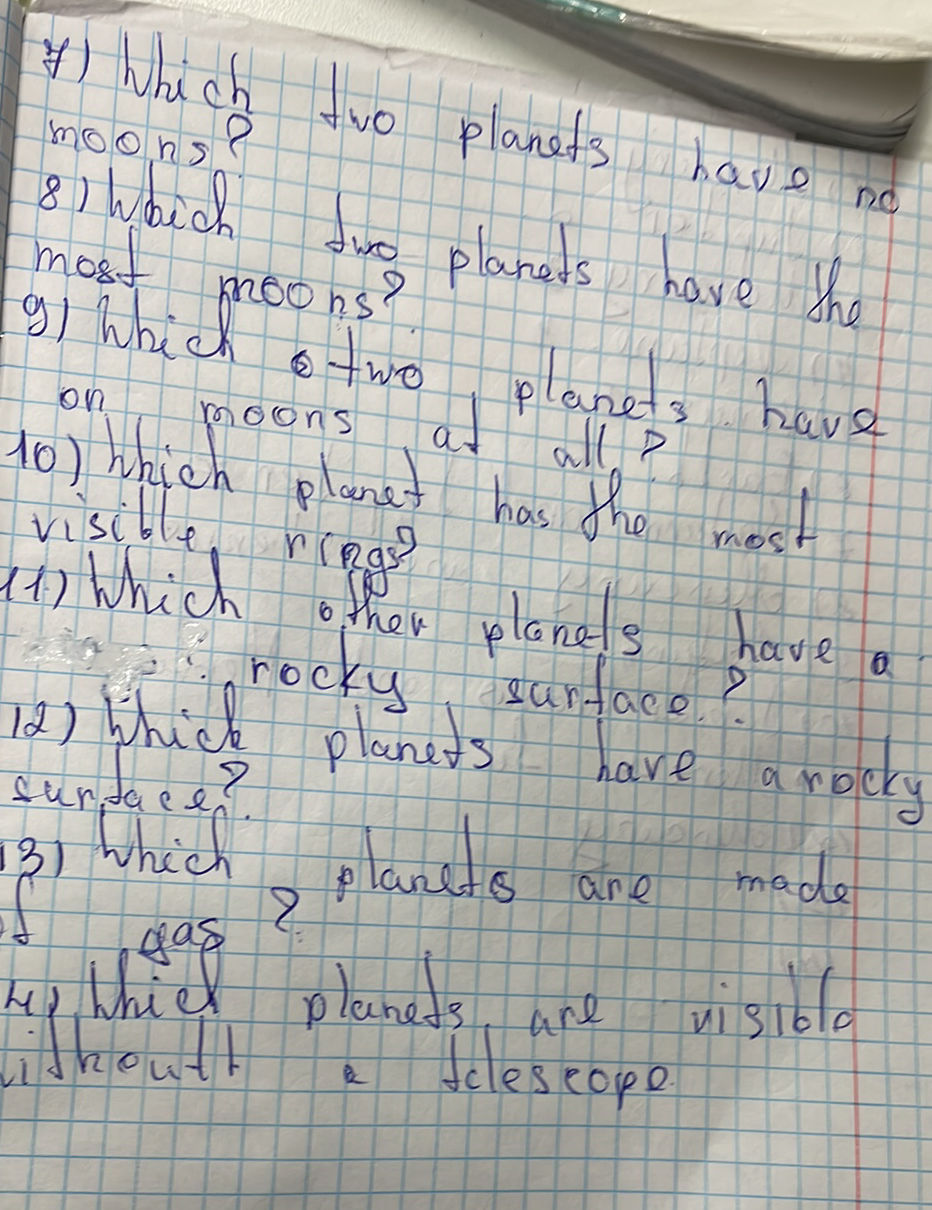 7) Which two planets have no
moons?
8) Which two planets have the
most moons?
9) Which two planets have
on moons at all?
10) Which planet has the most
visible rings?
11) Which other planets have a
rocky surface?
12) Which planets have a rocky
surface?
13) Which planets are made
of gas?
14) Which planets are visible
withoutt a telescope.